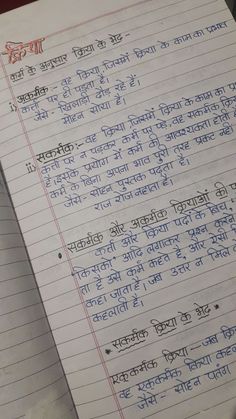 क्रिया
कर्म के अनुसार क्रिया के भेद -
i) अकर्मक - वह क्रिया, जिसमें क्रिया के काम का प्रभाव
कर्ता पर ही पड़ता है।
जैसे - खिलाड़ी दौड़ रहे हैं।
मोहन सोया है।
ii) सकर्मक:- वह क्रिया जिसमें क्रिया के काम का प्र
कर्ता पर न पड़कर कर्म पर पड़े, वह सकर्मक क्रिया
है। इसके प्रयोग में कर्म की आवश्यकता होती है
कर्म के बिना अपना भाव पूरी तरह प्रकट नहीं
जैसे - सोहन पुस्तक पढ़ता है।
राज रोज नहाता है।
• सकर्मक और अकर्मक क्रियाओं की प
कर्ता और क्रिया पदों के बिच
किसको, आदि लगाकर प्रश्न करने
ता है उसे कर्म कहते हैं, और ऐसी
कहा जाता है। जब उत्तर न मिले
कहलाती है।
• सकर्मक क्रिया के भेद -
एककर्मक क्रिया - जब क्रि
वह एककर्मक क्रिया कहल
जैसे - सोहन पतंग